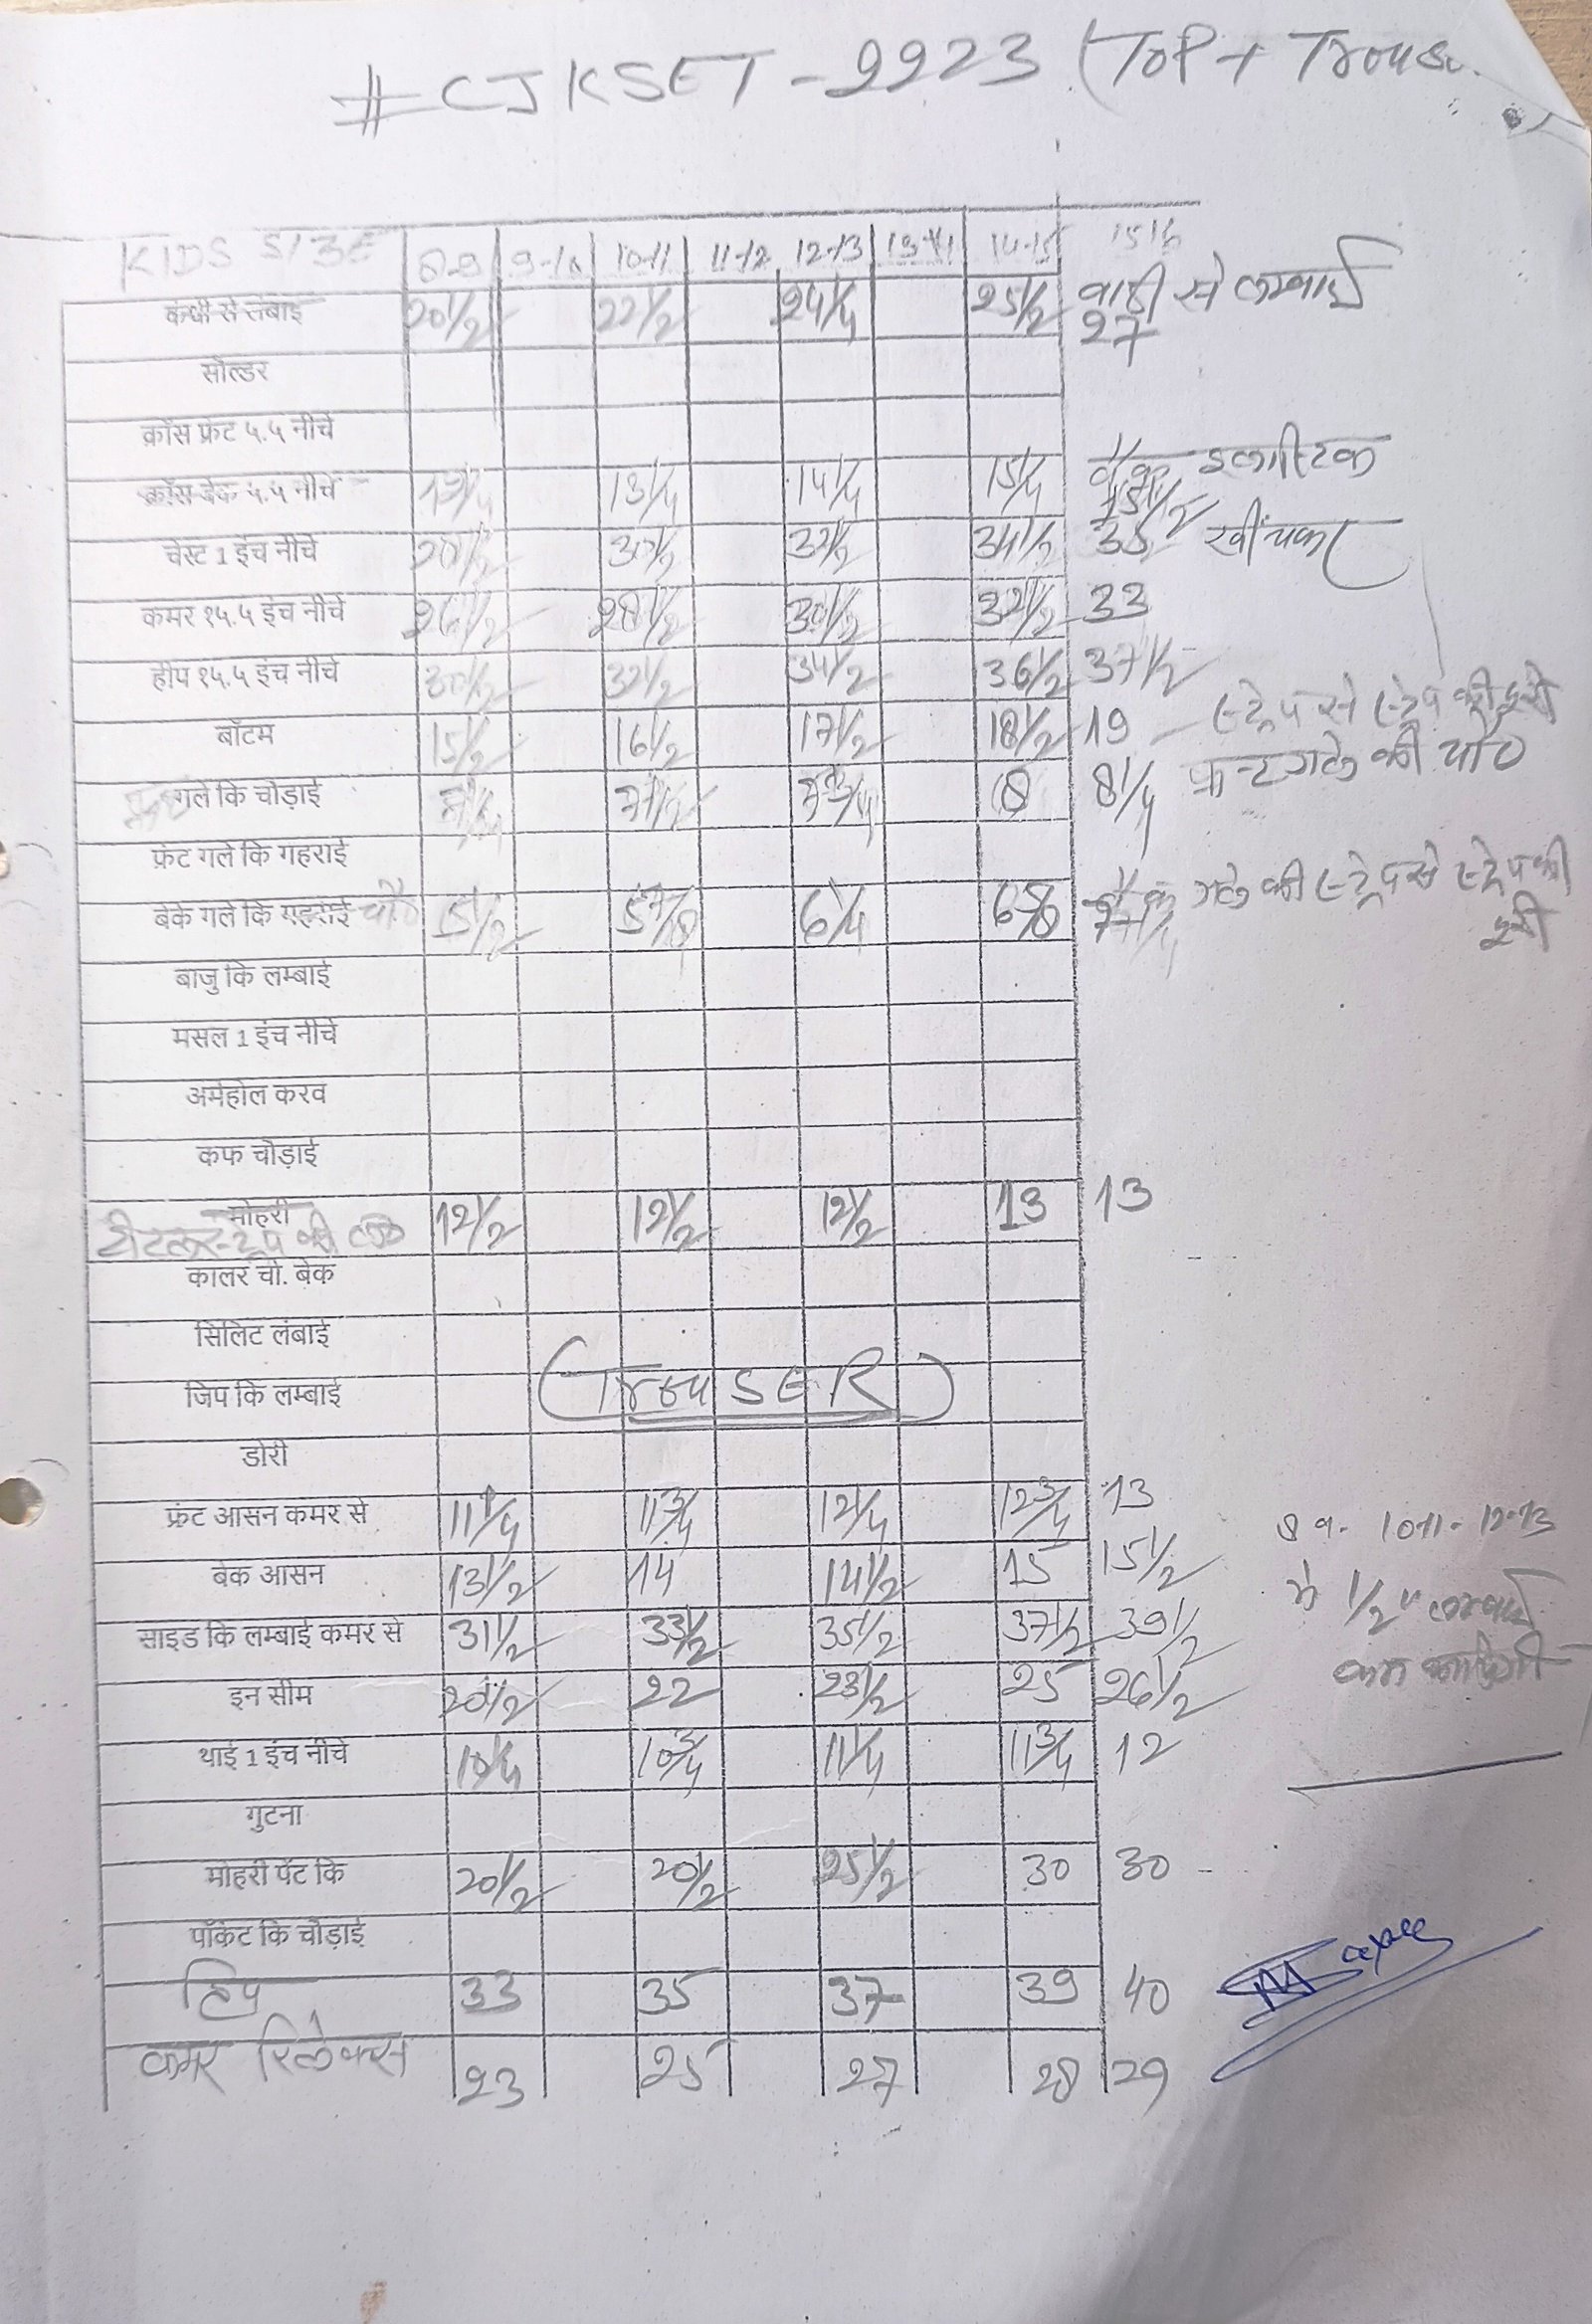 # CJKSET-2223 (TOP + Trouse
KIDS SIZE 8-9 9-10 10-11 11-12 12-13 13-14 14-15 15 16
कंधी से लंबाई 20 1/2 22 1/2 24 1/4 25 1/2 से लम्बाई
27
सोल्डर
क्रॉस फ्रंट ५.५ नीचे
क्रॉस बेक ५.५ नीचे 13 1/4 14 1/4 15 1/4 15 1/2 इलास्टिक
चेस्ट 1 इंच नीचे 30 1/2 32 1/2 34 1/2 35 खींचकर
कमर १५.५ इंच नीचे 26 1/2 28 1/2 30 1/2 32 1/2 33
हीप १५.५ इंच नीचे 30 1/2 32 1/2 34 1/2 36 1/2 37 1/2
बॉटम 15 1/2 16 1/2 17 1/2 18 1/2 19 स्ट्रेप से स्ट्रेप की दूरी
गले कि चोड़ाई 7 1/4 7 1/2 7 3/4 8 8 1/4 फ्रन्ट गले की चौ०
फ्रंट गले कि गहराई
बेके गले कि गहराई चौ० 5 1/2 5 7/8 6 1/4 6 5/8 गले की स्ट्रेप से स्ट्रेप की
दूरी
बाजु कि लम्बाई
मसल 1 इंच नीचे
अर्महोल करव
कफ चोड़ाई
मोहरी 12 1/2 12 1/2 12 1/2 13 13
कालर चो. बेक
सिलिट लंबाई
(TrouSER)
जिप कि लम्बाई
डोरी
फ्रंट आसन कमर से 11 1/4 11 3/4 12 1/4 12 3/4 13
बेक आसन 13 1/2 14 14 1/2 15 15 1/2
साइड कि लम्बाई कमर से 31 1/2 33 1/2 35 1/2 37 1/2 39 1/2
इन सीम 20 1/2 22 23 1/2 25 26 1/2
थाई 1 इंच नीचे 10 1/4 10 3/4 11 1/4 11 3/4 12
गुटना
मोहरी पेंट कि 20 1/2 20 1/2 25 1/2 30 30
पॉकेट कि चोड़ाई
हिप 33 35 37 39 40
कमर रिलेक्स 23 25 27 28 29
10-11- 12-13
मे 1/2" लम्बाई
कम